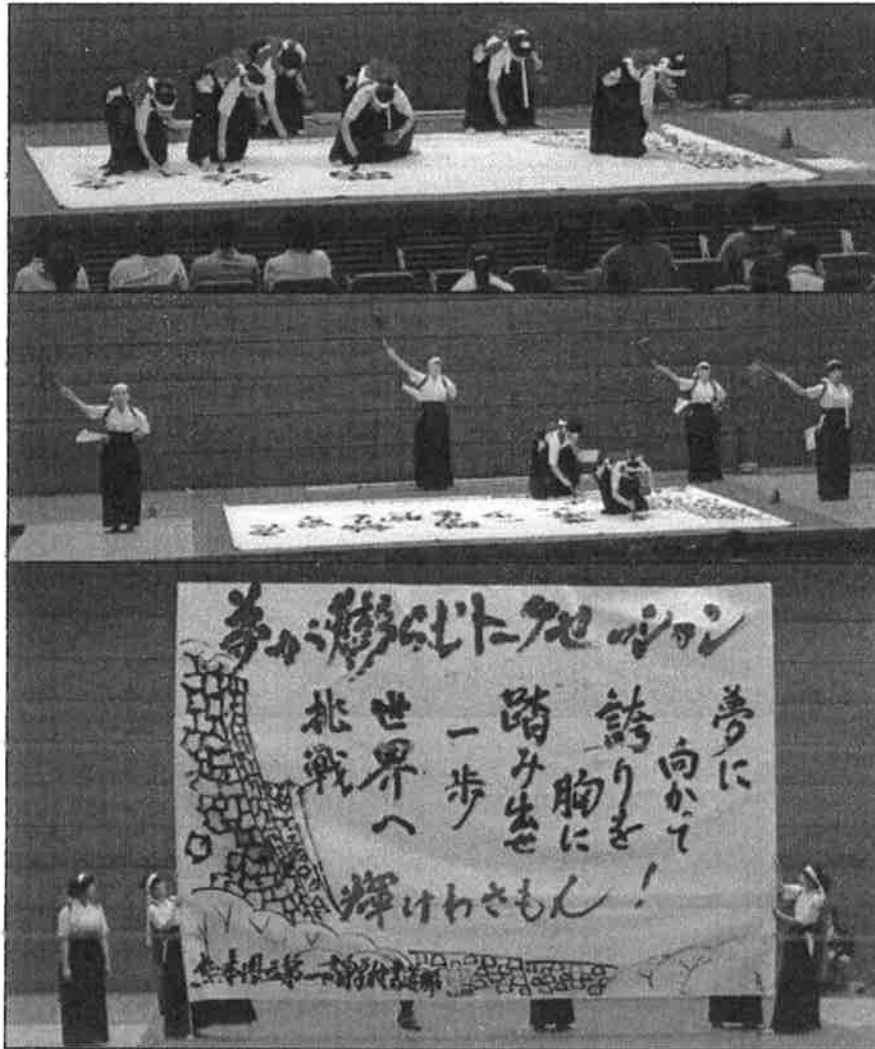 夢が膨らむトークセッション
夢に
向かって
誇りを
胸に
踏み出せ
一歩
世界へ
挑戦
輝けわさもん!
熊本県立第一高等学校書道部